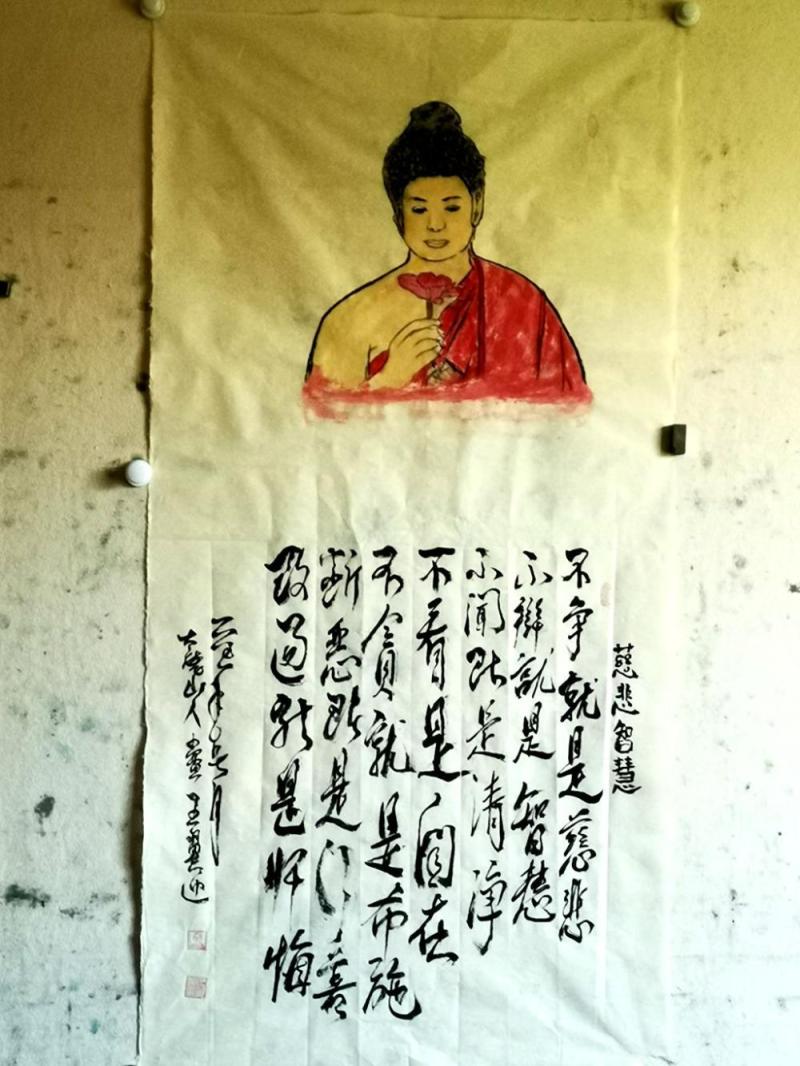 慈悲智慧
不争就是慈悲
不辩就是智慧
不闻就是清淨
不看是自在
不贪就是布施
断恶就是行善
改过就是忏悔
年 月
山人 畫 王翼